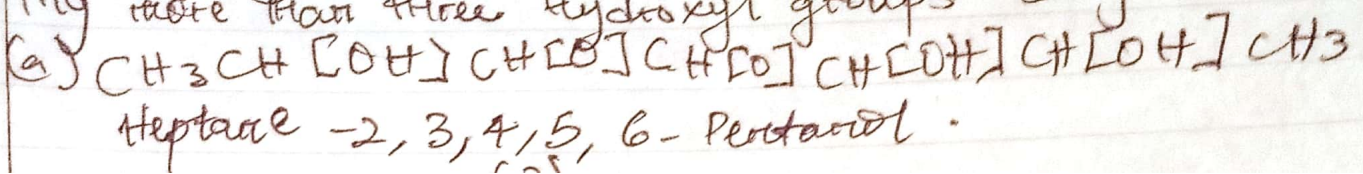 more than three hydroxyl groups
(a) CH3CH[OH]CH[O]CH[O]CH[OH]CH[OH]CH3
Heptane -2, 3, 4, 5, 6- Pentanol.